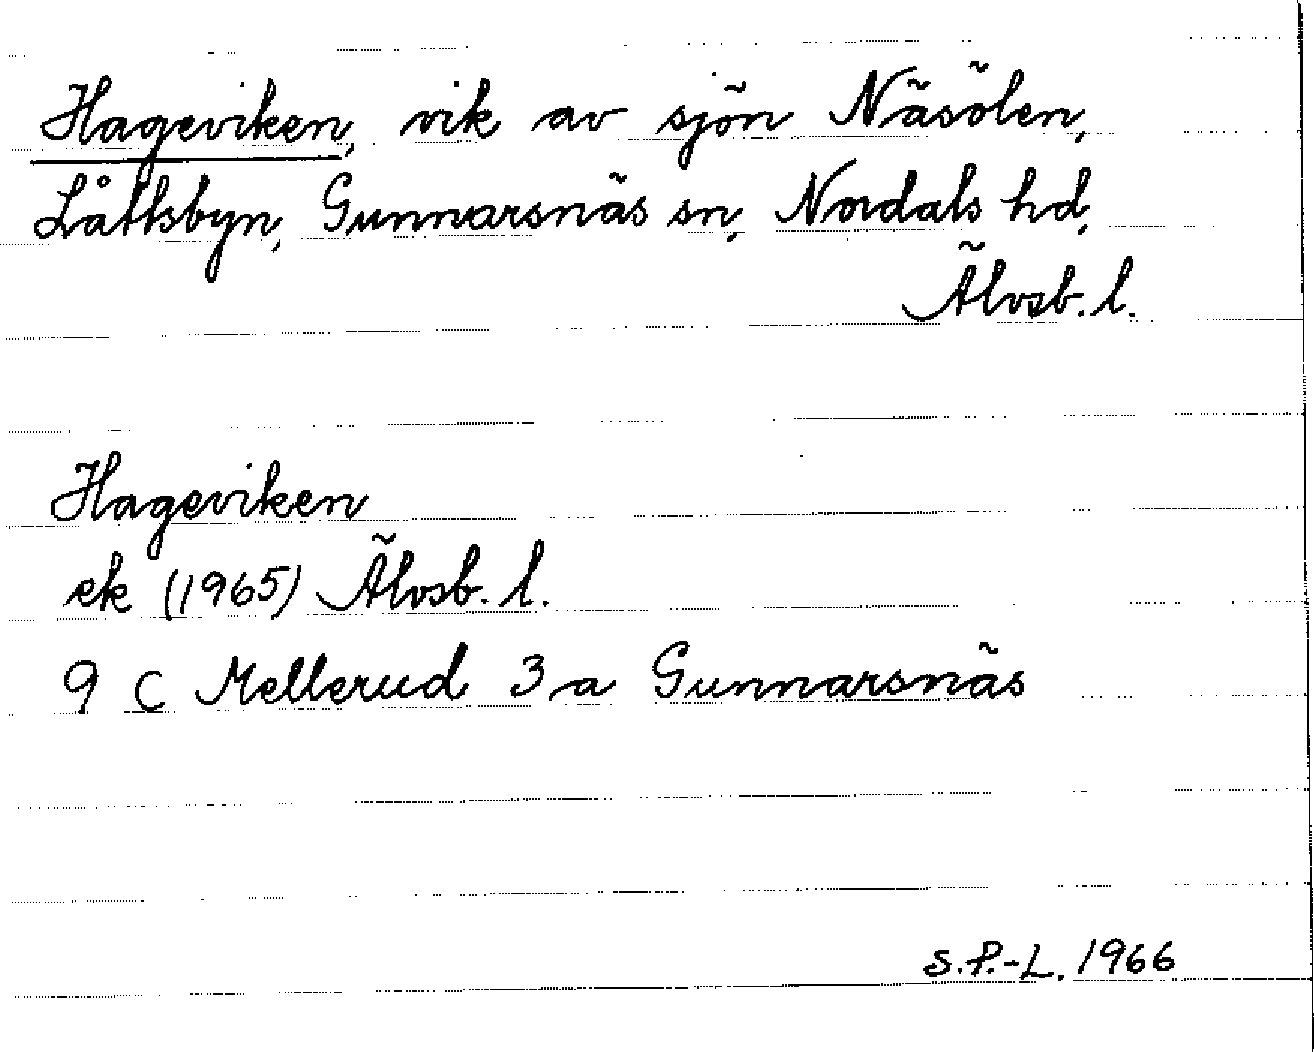 Hageviken, vik av sjön Näsölen,
Låttsbyn, Gunnarsnäs sn, Nordals hd,
Älvsb. l.
Hageviken
ek (1965) Älvsb. l.
9 C Mellerud 3 a Gunnarsnäs
S.P.-L. 1966